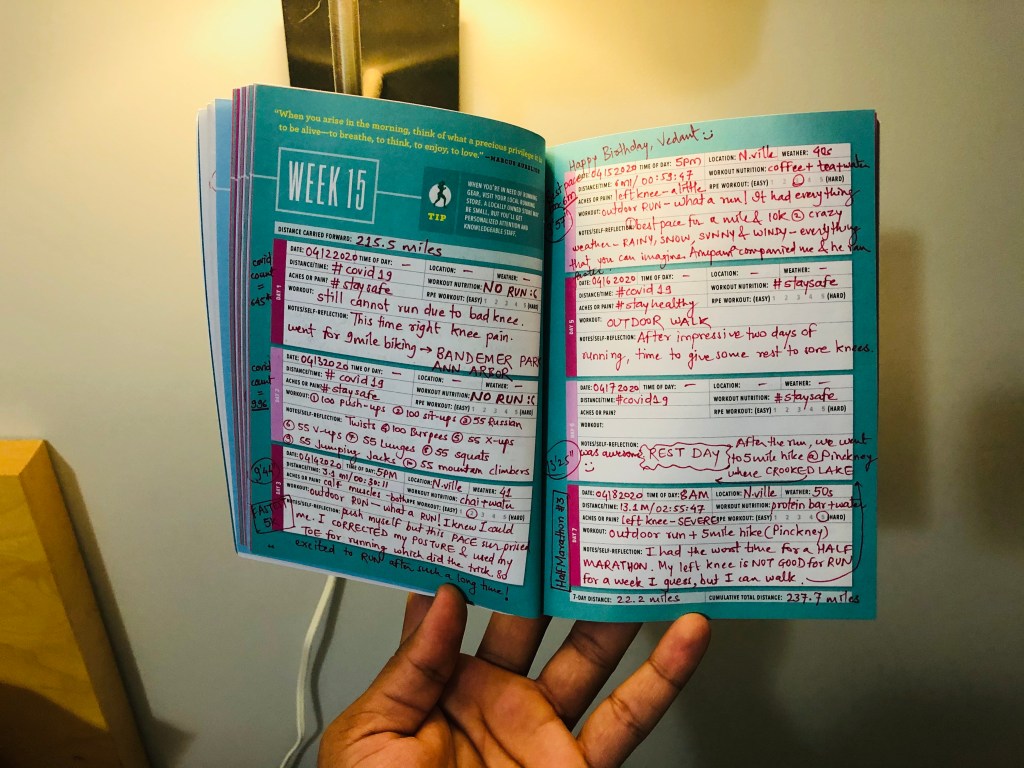 "When you arise in the morning, think of what a precious privilege it is
to be alive—to breathe, to think, to enjoy, to love." —MARCUS AURELIUS
WEEK 15
TIP
WHEN YOU'RE IN NEED OF RUNNING
GEAR, VISIT YOUR LOCAL RUNNING
STORE. A LOCALLY OWNED STORE MAY
BE SMALL, BUT YOU'LL GET
PERSONALIZED ATTENTION AND
KNOWLEDGEABLE STAFF.
DISTANCE CARRIED FORWARD: 215.5 miles
covid
count
=
DAY 1
DATE: 04122020 TIME OF DAY: — LOCATION: — WEATHER: —
DISTANCE/TIME: #covid19 WORKOUT NUTRITION: NO RUN :(
ACHES OR PAIN? #staysafe RPE WORKOUT: (EASY) 1 2 3 4 5 (HARD)
WORKOUT: still cannot run due to bad knee.
NOTES/SELF-REFLECTION: This time right knee pain.
went for 9mile biking → BANDEMER PARK
ANN ARBOR
covid
count
=
996
DAY 2
DATE: 04132020 TIME OF DAY: — LOCATION: — WEATHER: —
DISTANCE/TIME: #covid19 WORKOUT NUTRITION: NO RUN :(
ACHES OR PAIN? #staysafe RPE WORKOUT: (EASY) 1 2 3 4 5 (HARD)
WORKOUT: ① 100 push-ups ② 100 sit-ups ③ 55 Russian
NOTES/SELF-REFLECTION: Twists ④ 100 Burpees ⑤ 55 X-ups
⑥ 55 V-ups ⑦ 55 lunges ⑧ 55 squats
⑨ 55 Jumping Jacks ⑩ 55 mountain climbers
9'44"
EASTER
5K
DAY 3
DATE: 04142020 TIME OF DAY: 5PM LOCATION: N.ville WEATHER: 41
DISTANCE/TIME: 3.1 mi/00:30:11 WORKOUT NUTRITION: chai+water
ACHES OR PAIN? calf muscles - both RPE WORKOUT: (EASY) 1 2 3 4 5 (HARD)
WORKOUT: outdoor RUN - what a RUN! I knew I could
NOTES/SELF-REFLECTION: push myself but this PACE surprised
me. I CORRECTED my POSTURE & used my
TOE for running which did the trick. So
excited to RUN after such a long time!
Happy Birthday, Vedant :)
DATE: 04152020 TIME OF DAY: 5pm LOCATION: N.ville WEATHER: 40s
DISTANCE/TIME: 6mi/00:59:47 WORKOUT NUTRITION: coffee+tea+water
ACHES OR PAIN? left knee - a little RPE WORKOUT: (EASY) 1 2 3 4 5 (HARD)
WORKOUT: outdoor RUN - what a run! It had everything
NOTES/SELF-REFLECTION: ① best pace for a mile & 10K ② crazy
weather - RAINY, SNOW, SUNNY & WINDY - everything
that you can imagine. Anupam companied me & he ran
faster.
DAY 5
DATE: 04162020 TIME OF DAY: — LOCATION: — WEATHER: —
DISTANCE/TIME: #covid19 WORKOUT NUTRITION: #staysafe
ACHES OR PAIN? #stayhealthy RPE WORKOUT: (EASY) 1 2 3 4 5 (HARD)
WORKOUT: OUTDOOR WALK
NOTES/SELF-REFLECTION: After impressive two days of
running, time to give some rest to sore knees.
DAY 6
DATE: 04172020 TIME OF DAY: — LOCATION: — WEATHER: —
DISTANCE/TIME: #covid19 WORKOUT NUTRITION: #staysafe
ACHES OR PAIN? RPE WORKOUT: (EASY) 1 2 3 4 5 (HARD)
WORKOUT:
NOTES/SELF-REFLECTION: REST DAY After the run, we went
to 5 mile hike @ Pinckney
was awesome :) where CROOKED LAKE
13'25"
Half Marathon #3
DAY 7
DATE: 04182020 TIME OF DAY: 8AM LOCATION: N.ville WEATHER: 50s
DISTANCE/TIME: 13.1 M/02:55:47 WORKOUT NUTRITION: protein bar+water
ACHES OR PAIN? left knee - SEVERE RPE WORKOUT: (EASY) 1 2 3 4 5 (HARD)
WORKOUT: outdoor run + 5mile hike (Pinckney)
NOTES/SELF-REFLECTION: I had the worst time for a HALF
MARATHON. My left knee is NOT GOOD for RUN
for a week I guess, but I can walk.
7-DAY DISTANCE: 22.2 miles CUMULATIVE TOTAL DISTANCE: 237.7 miles